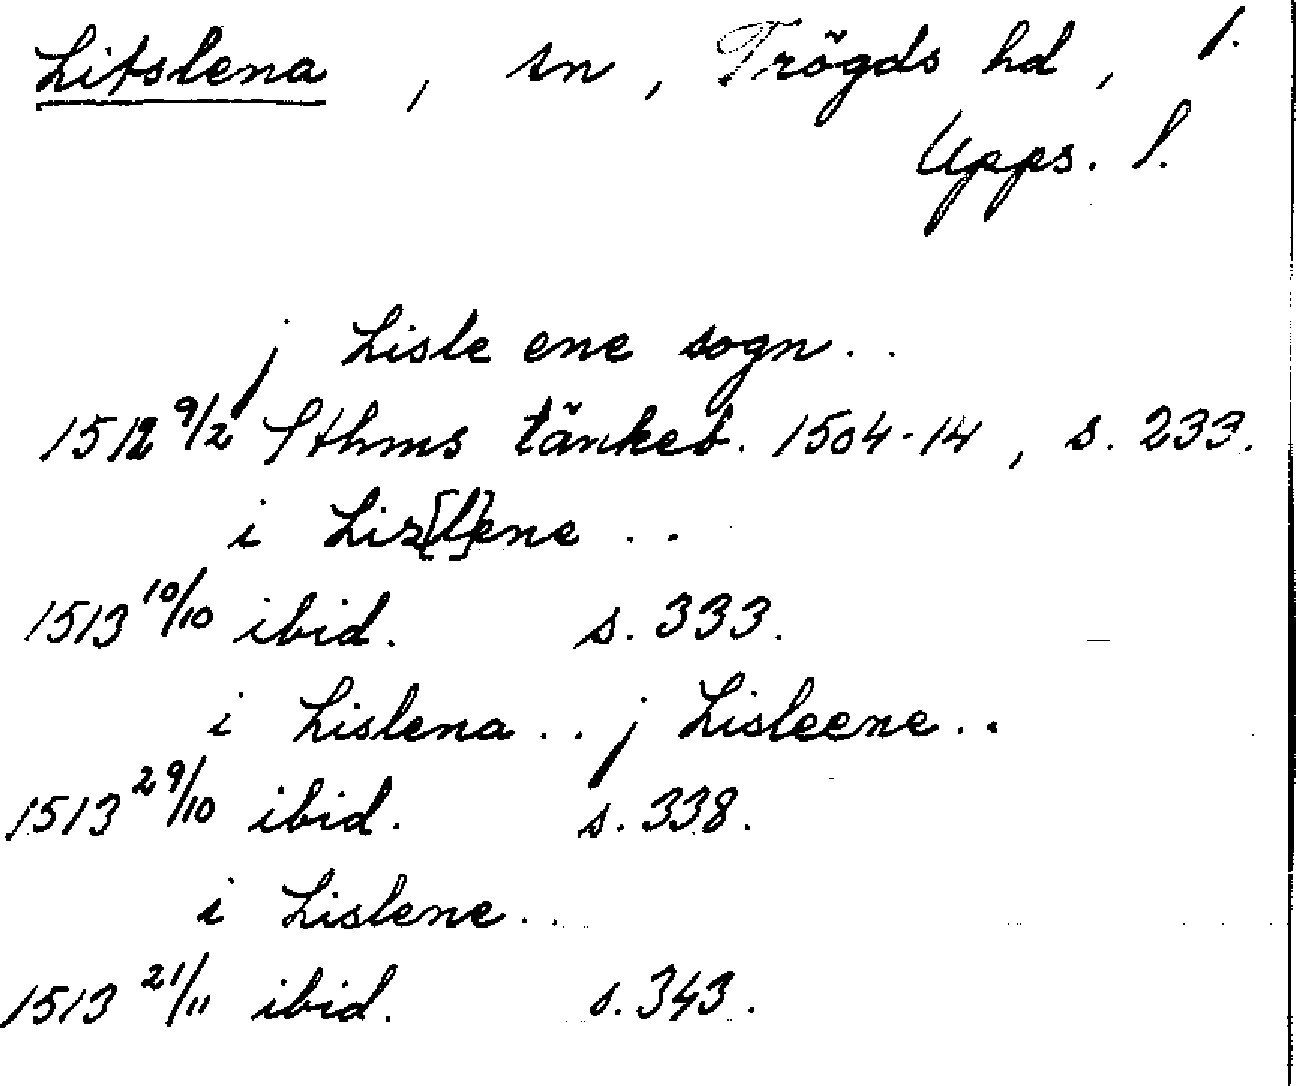 Litslena, sn, Trögds hd, 1.
Upps. l.
j Lisle ene sogn..
1512 9/2 Sthms tänkeb. 1504-14, s. 233.
i Lis[l]ene ..
1513 10/10 ibid. s. 333.
i Lislena .. j Lisleene ..
1513 29/10 ibid. s. 338.
i Lislene ..
1513 21/11 ibid. s. 343.